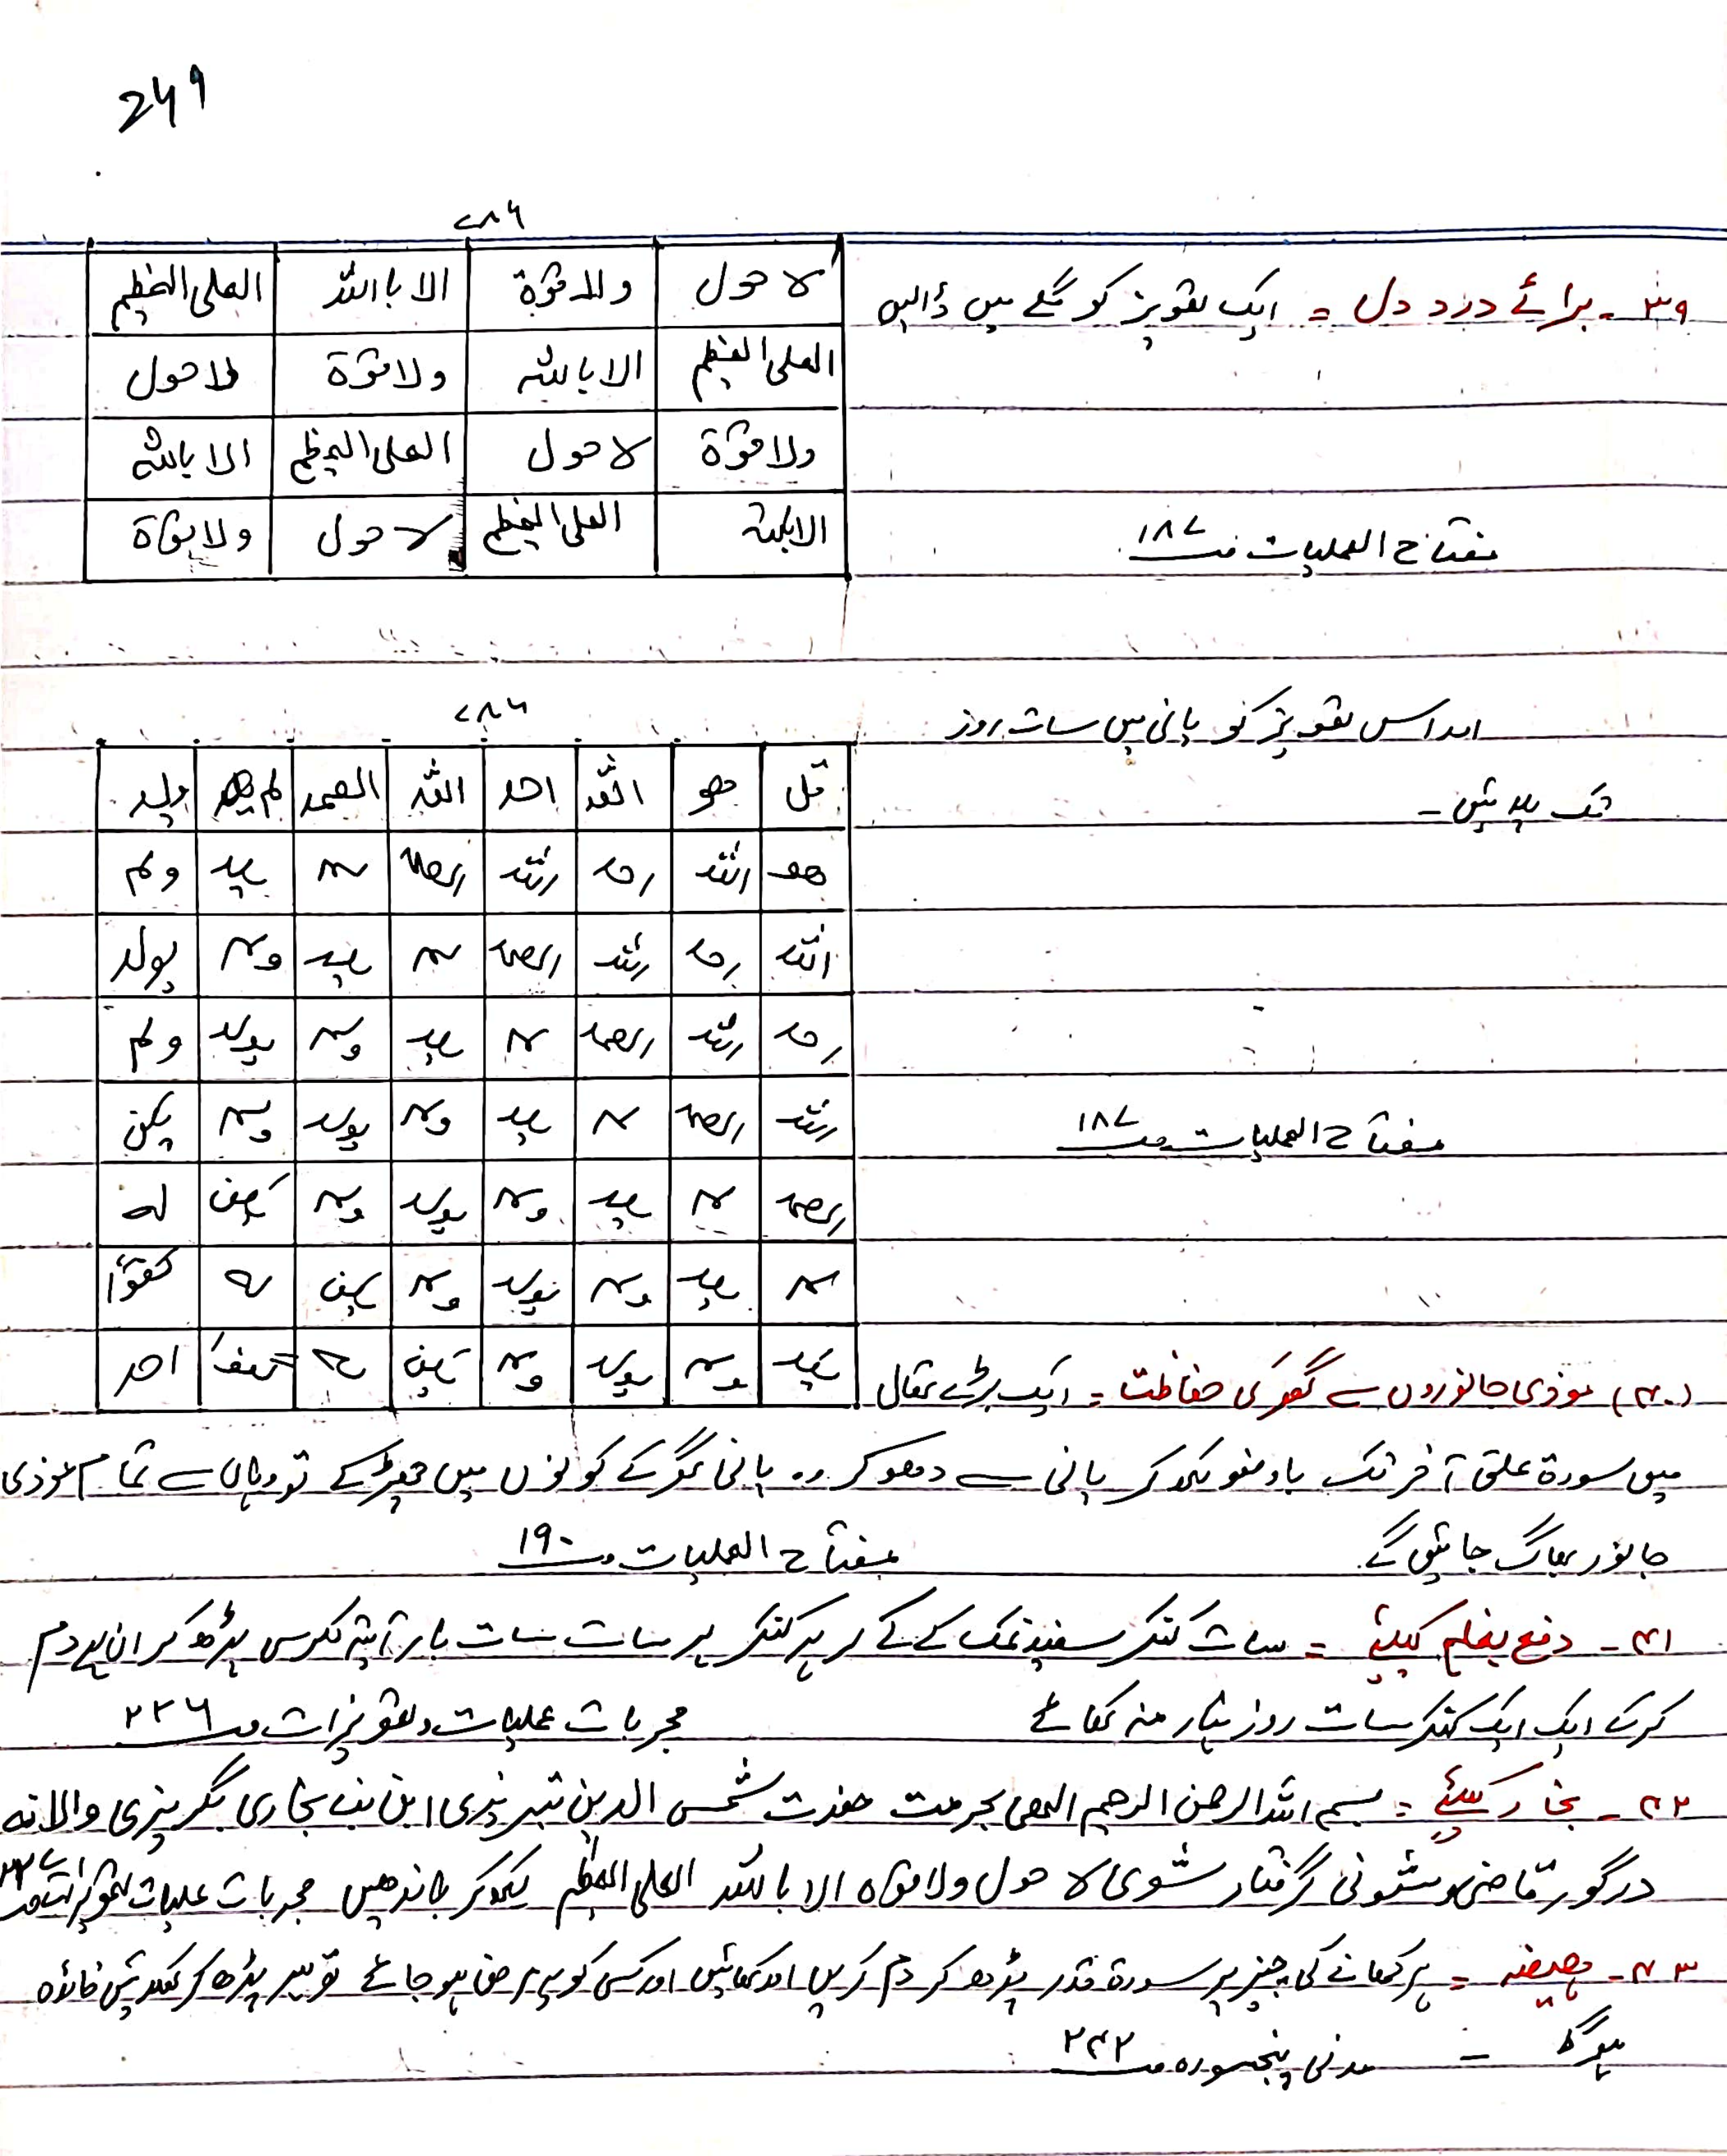 249
۷۸۶
۳۹۔ برائے درد دل = ایک تعویز کو گلے میں ڈالیں
لا حول | ولا قوۃ | الا باالله | العلی العظیم
العلی العظیم | الا بالله | ولا قوۃ | لا حول
ولا قوۃ | لا حول | العلی العظیم | الا بالله
الا بالله | العلی العظیم | لا حول | ولا قوۃ
مفتاح العملیات صـ ۱۸۷
۷۸۶
اور اس تعویز کو پانی میں سات روز
تک پلائیں ۔
قل | هو | الله | احد | الله | الصمد | لم | یلد
هو | الله | احد | الله | الصمد | لم | یلد | ولم
الله | احد | الله | الصمد | لم | یلد | ولم | یولد
احد | الله | الصمد | لم | یلد | ولم | یولد | ولم
الله | الصمد | لم | یلد | ولم | یولد | ولم | یکن
الصمد | لم | یلد | ولم | یولد | ولم | یکن | له
لم | یلد | ولم | یولد | ولم | یکن | له | کفوًا
یلد | ولم | یولد | ولم | یکن | له | کفوا | احد
مفتاح العملیات صـ ۱۸۷
(۴۰) موذی جانوروں سے گھر کی حفاظت = ایک بڑے تھال
میں سورۃ علق آخر تک باوضو لکھ کر پانی سے دھو کر وہ پانی گھر کے کونوں میں چھڑکے تو وہاں سے تمام موذی
جانور بھاگ جائیں گے. مفتاح العملیات صـ ۱۹۰
۴۱ ۔ دفع بلغم کیلئے = سات کنکر سفید نمک کے لے کر ہر کنکر پر سات سات بار آیۃ لکرسی پڑھ کر ان پے دم
کرکے ایک ایک کنکر سات روز نہار منہ کھائے مجربات عملیات و تعویزات صـ ۲۲۶
۴۲ ۔ بخار کیلئے = بسم الله الرحمن الرحیم الهی بحرمت حضرت شمس الدین تبریزی این تب بخاری بگریزی والا نه
در گور قاضی شونی گرفتار شوی لا حول ولا قوۃ الا بالله العلی العظیم لکھ کر باندھیں مجربات عملیات تعویزات صـ
۴۳ ۔ ہیضہ = ہر کھانے کی چیز پر سورۃ قدر پڑھ کر دم کریں اور کھائیں اور کسی کو یہ مرض ہو جائے تو پڑھ کر کھلائیں فائدہ
ہوگا ۔ مدنی پنجسورہ صـ ۲۴۲